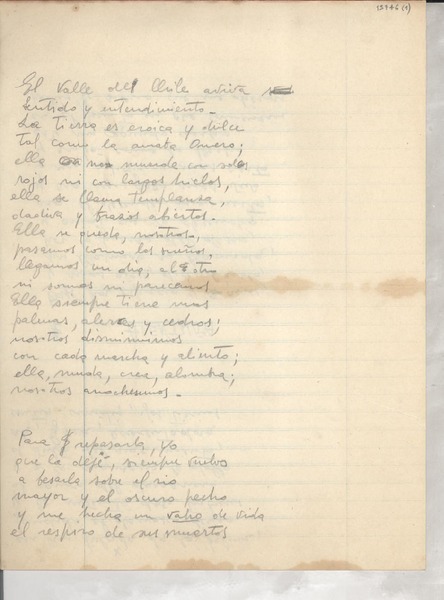 13746(1)
El valle del Chile aviva
sentido y entendimiento.
La tierra es eroica y dulce
tal como la
ella no muerde con soles
rojos ni con largos hielos,
ella se llama templanza,
dadiva y brazos abiertos.
Ella se queda, nosotros,
pasamos como los sueños,
llegamos un día, al otro
ni somos ni parecemos
Ella siempre tiene mas
palmas, y cedros;
nosotros disminuimos
con cada marcha y aliento;
ella, muda, crea, alumbra;
nosotros anochesemos.
Para repasarla, yo
que la dejé, siempre vuelvo
a besarla sobre el río
mayor y el oscuro pecho
y me hecha un vaho de vida
el respiro de sus muertos